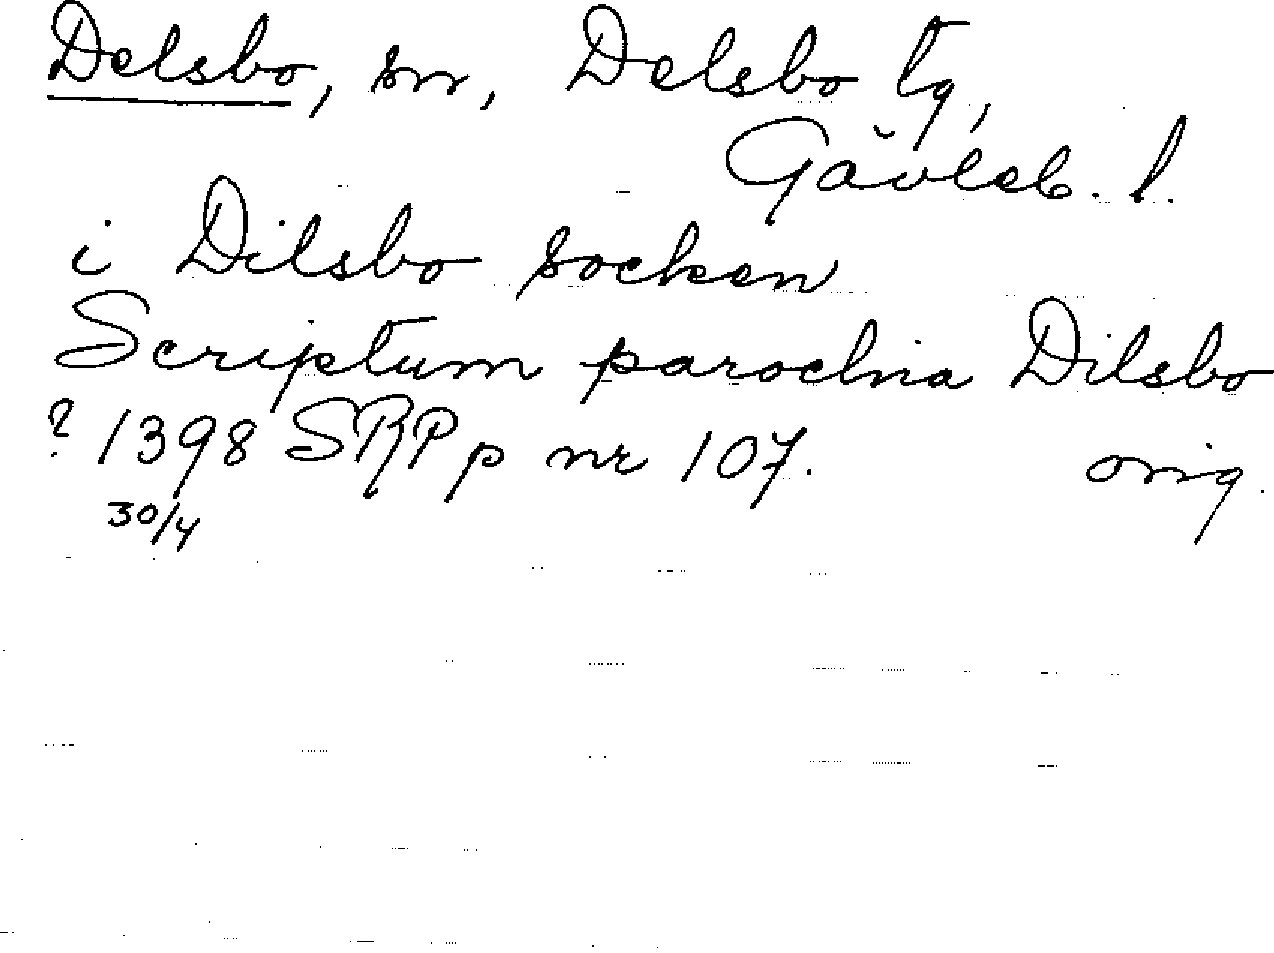 Delsbo, sn, Delsbo tg,
Gävleb. l.
i Dilsbo socken
Scriptum parochia Dilsbo
? 1398 SRPp nr 107. orig.
30/4